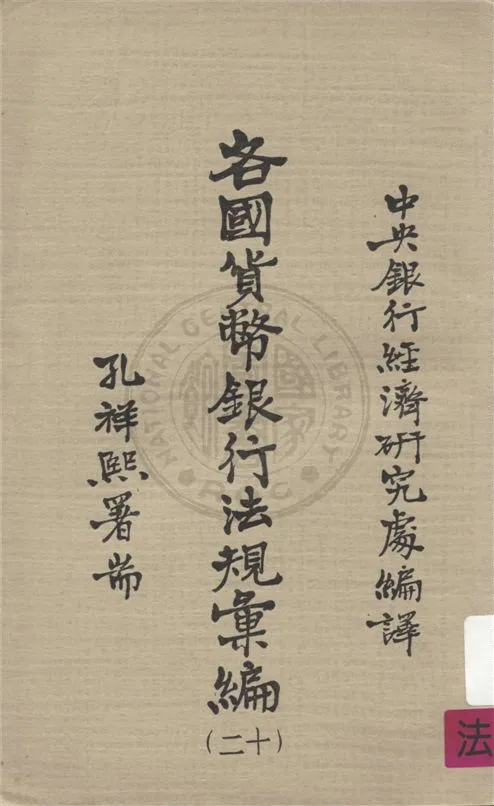 中央銀行經濟研究處編譯
各國貨幣銀行法規彙編
(二十)
孔祥熙署耑
法
NATIONAL CENTRAL LIBRARY